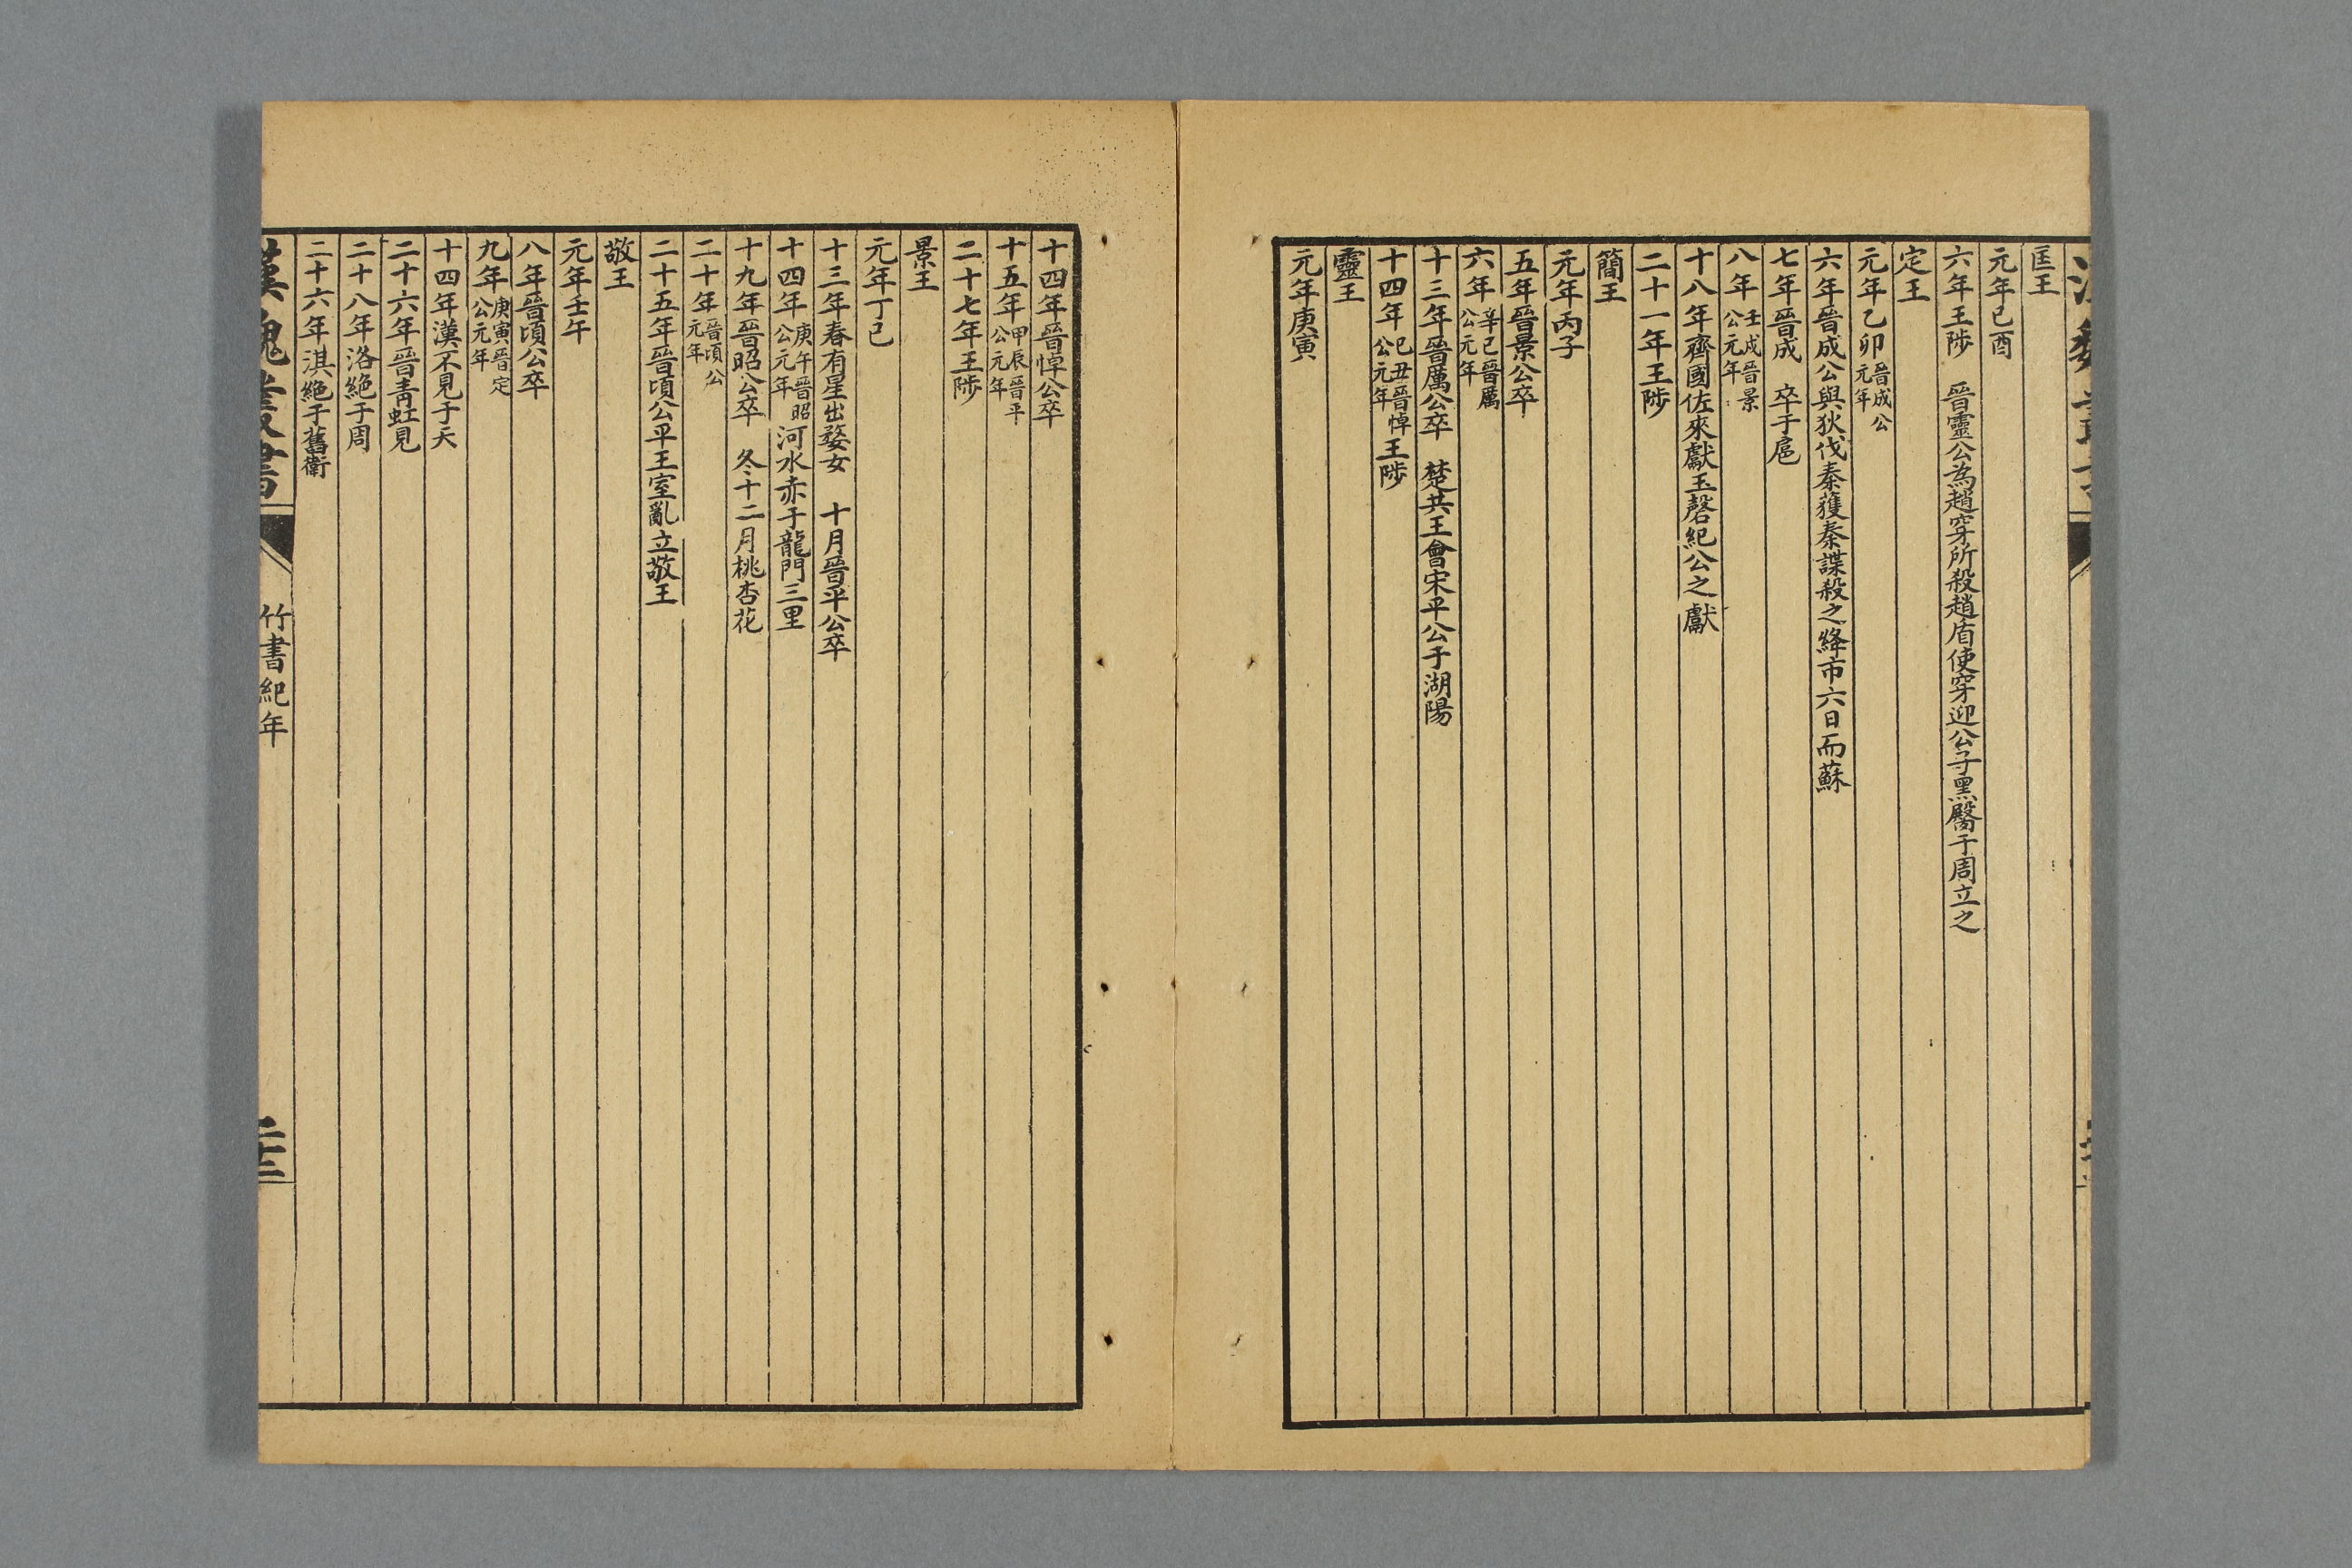 匡王
元年己酉
六年王陟　晉靈公為趙穿所殺趙盾使穿迎公子黑臀于周立之
定王
元年乙卯晉成公元年
六年晉成公與狄伐秦獲秦諜殺之絳市六日而蘇
七年晉成　卒于扈
八年壬戌晉景公元年
十八年齊國佐來獻玉磬紀公之獻
二十一年王陟
簡王
元年丙子
五年晉景公卒
六年辛巳晉厲公元年
十三年晉厲公卒　楚共王會宋平公于湖陽
十四年己丑晉悼公元年王陟
靈王
元年庚寅
十四年晉悼公卒
十五年甲辰晉平公元年
二十七年王陟
景王
元年丁巳
十三年春有星出婺女　十月晉平公卒
十四年庚午晉昭公元年河水赤于龍門三里
十九年晉昭公卒　冬十二月桃杏花
二十年晉頃公元年
二十五年晉頃公平王室亂立敬王
敬王
元年壬午
八年晉頃公卒
九年庚寅晉定公元年
十四年漢不見于天
二十六年晉青虹見
二十八年洛絕于周
二十六年淇絕于舊衛
漢魏叢書
竹書紀年
二十二